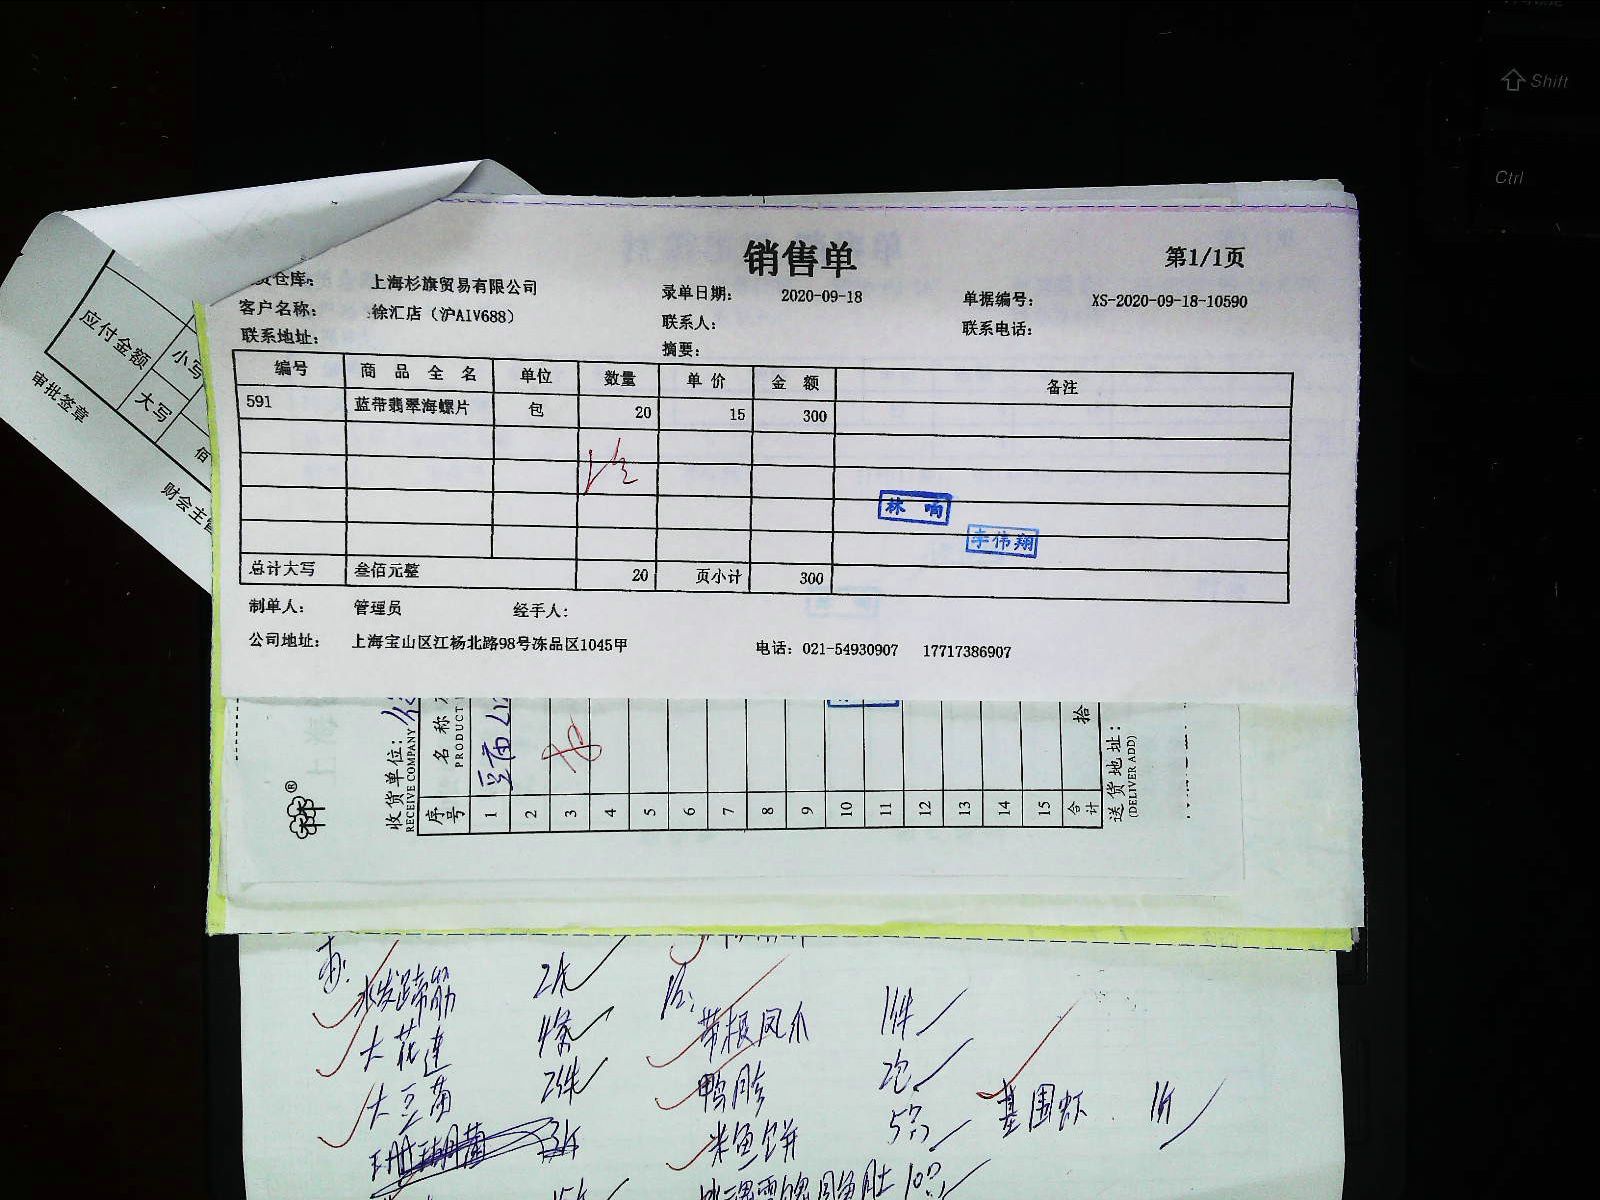 Shift
Ctrl
销售单
第1/1页
货仓库： 上海杉旗贸易有限公司 录单日期： 2020-09-18 单据编号： XS-2020-09-18-10590
客户名称： 徐汇店（沪AIV688） 联系人： 联系电话：
联系地址： 摘要：
编号 商品全名 单位 数量 单价 金额 备注
591 蓝带翡翠海螺片 包 20 15 300
林响
李伟翔
总计大写 叁佰元整 20 页小计 300
制单人： 管理员 经手人：
公司地址： 上海宝山区江杨北路98号冻品区1045甲 电话：021-54930907 17717386907
应付金额 小写
大写
佰
审批签章
财会主管
收货单位：
RECEIVE COMPANY
序号 名称
PRODUCT
1 豆苗
2
3
4
5
6
7
8
9
10
11
12
13
14
15
合计 拾
送货地址：
(DELIVER ADD)
水发蹄筋 2斤
大花连 4条
大豆苗 2件
珊瑚菌
带根凤爪 1件
鸭胗 2包
米鱼饼 5
基围虾 1斤